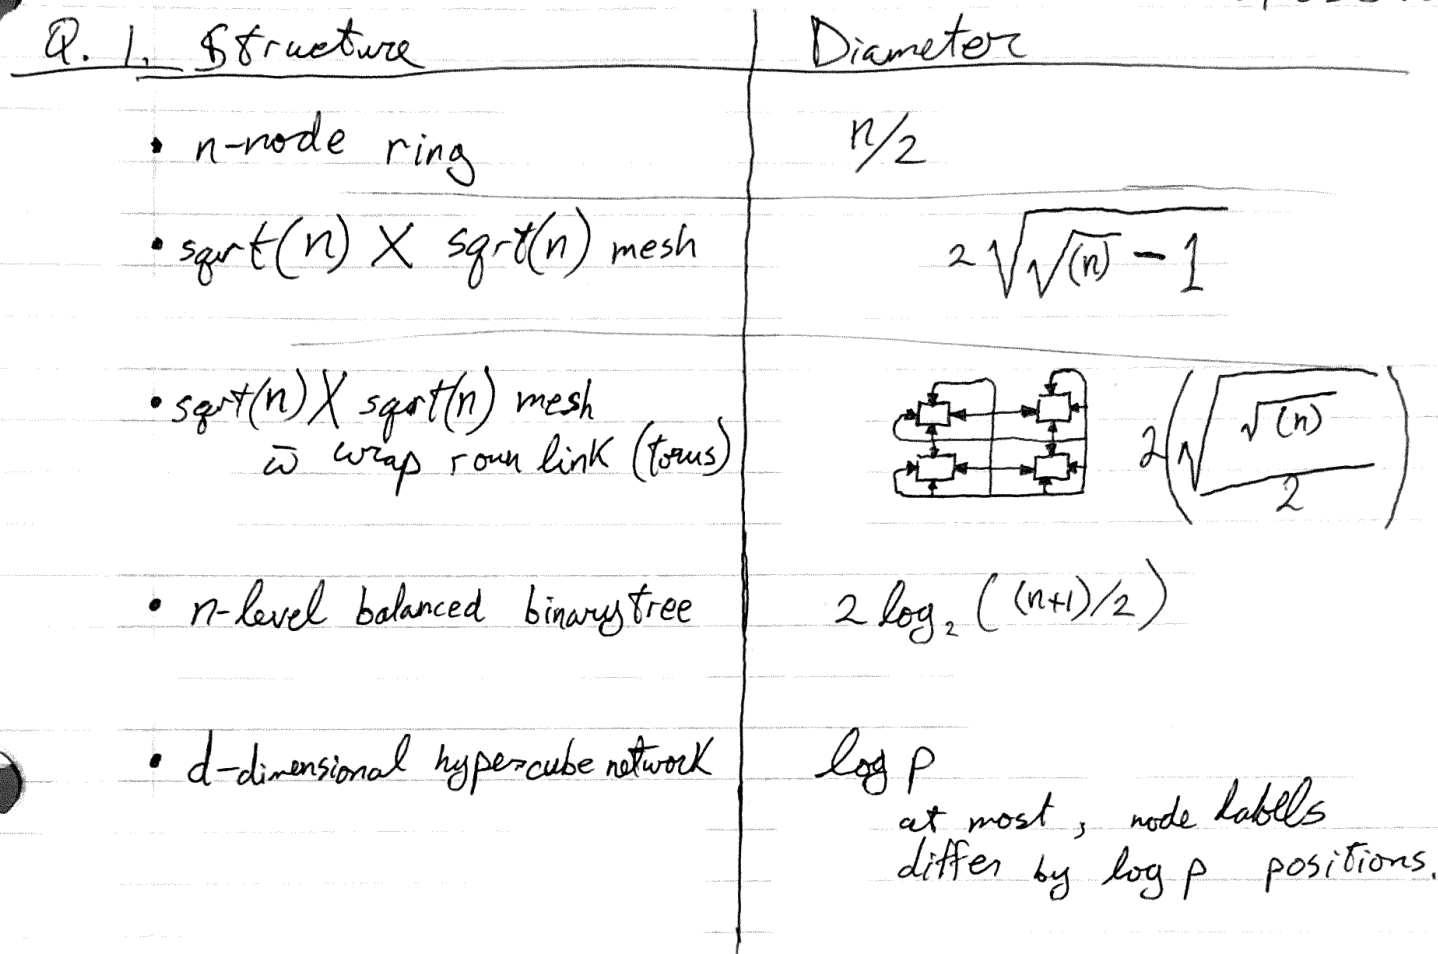 Q. 1. Structure | Diameter
• n-node ring | n/2
• sqrt(n) X sqrt(n) mesh | 2√(√(n) − 1)
• sqrt(n) X sqrt(n) mesh
w̄ wrap roun link (torus) | 2(√(√(n))/2)
• n-level balanced binary tree | 2 log₂ ((n+1)/2)
• d-dimensional hypercube network | log p
at most, node labells
differ by log p positions.